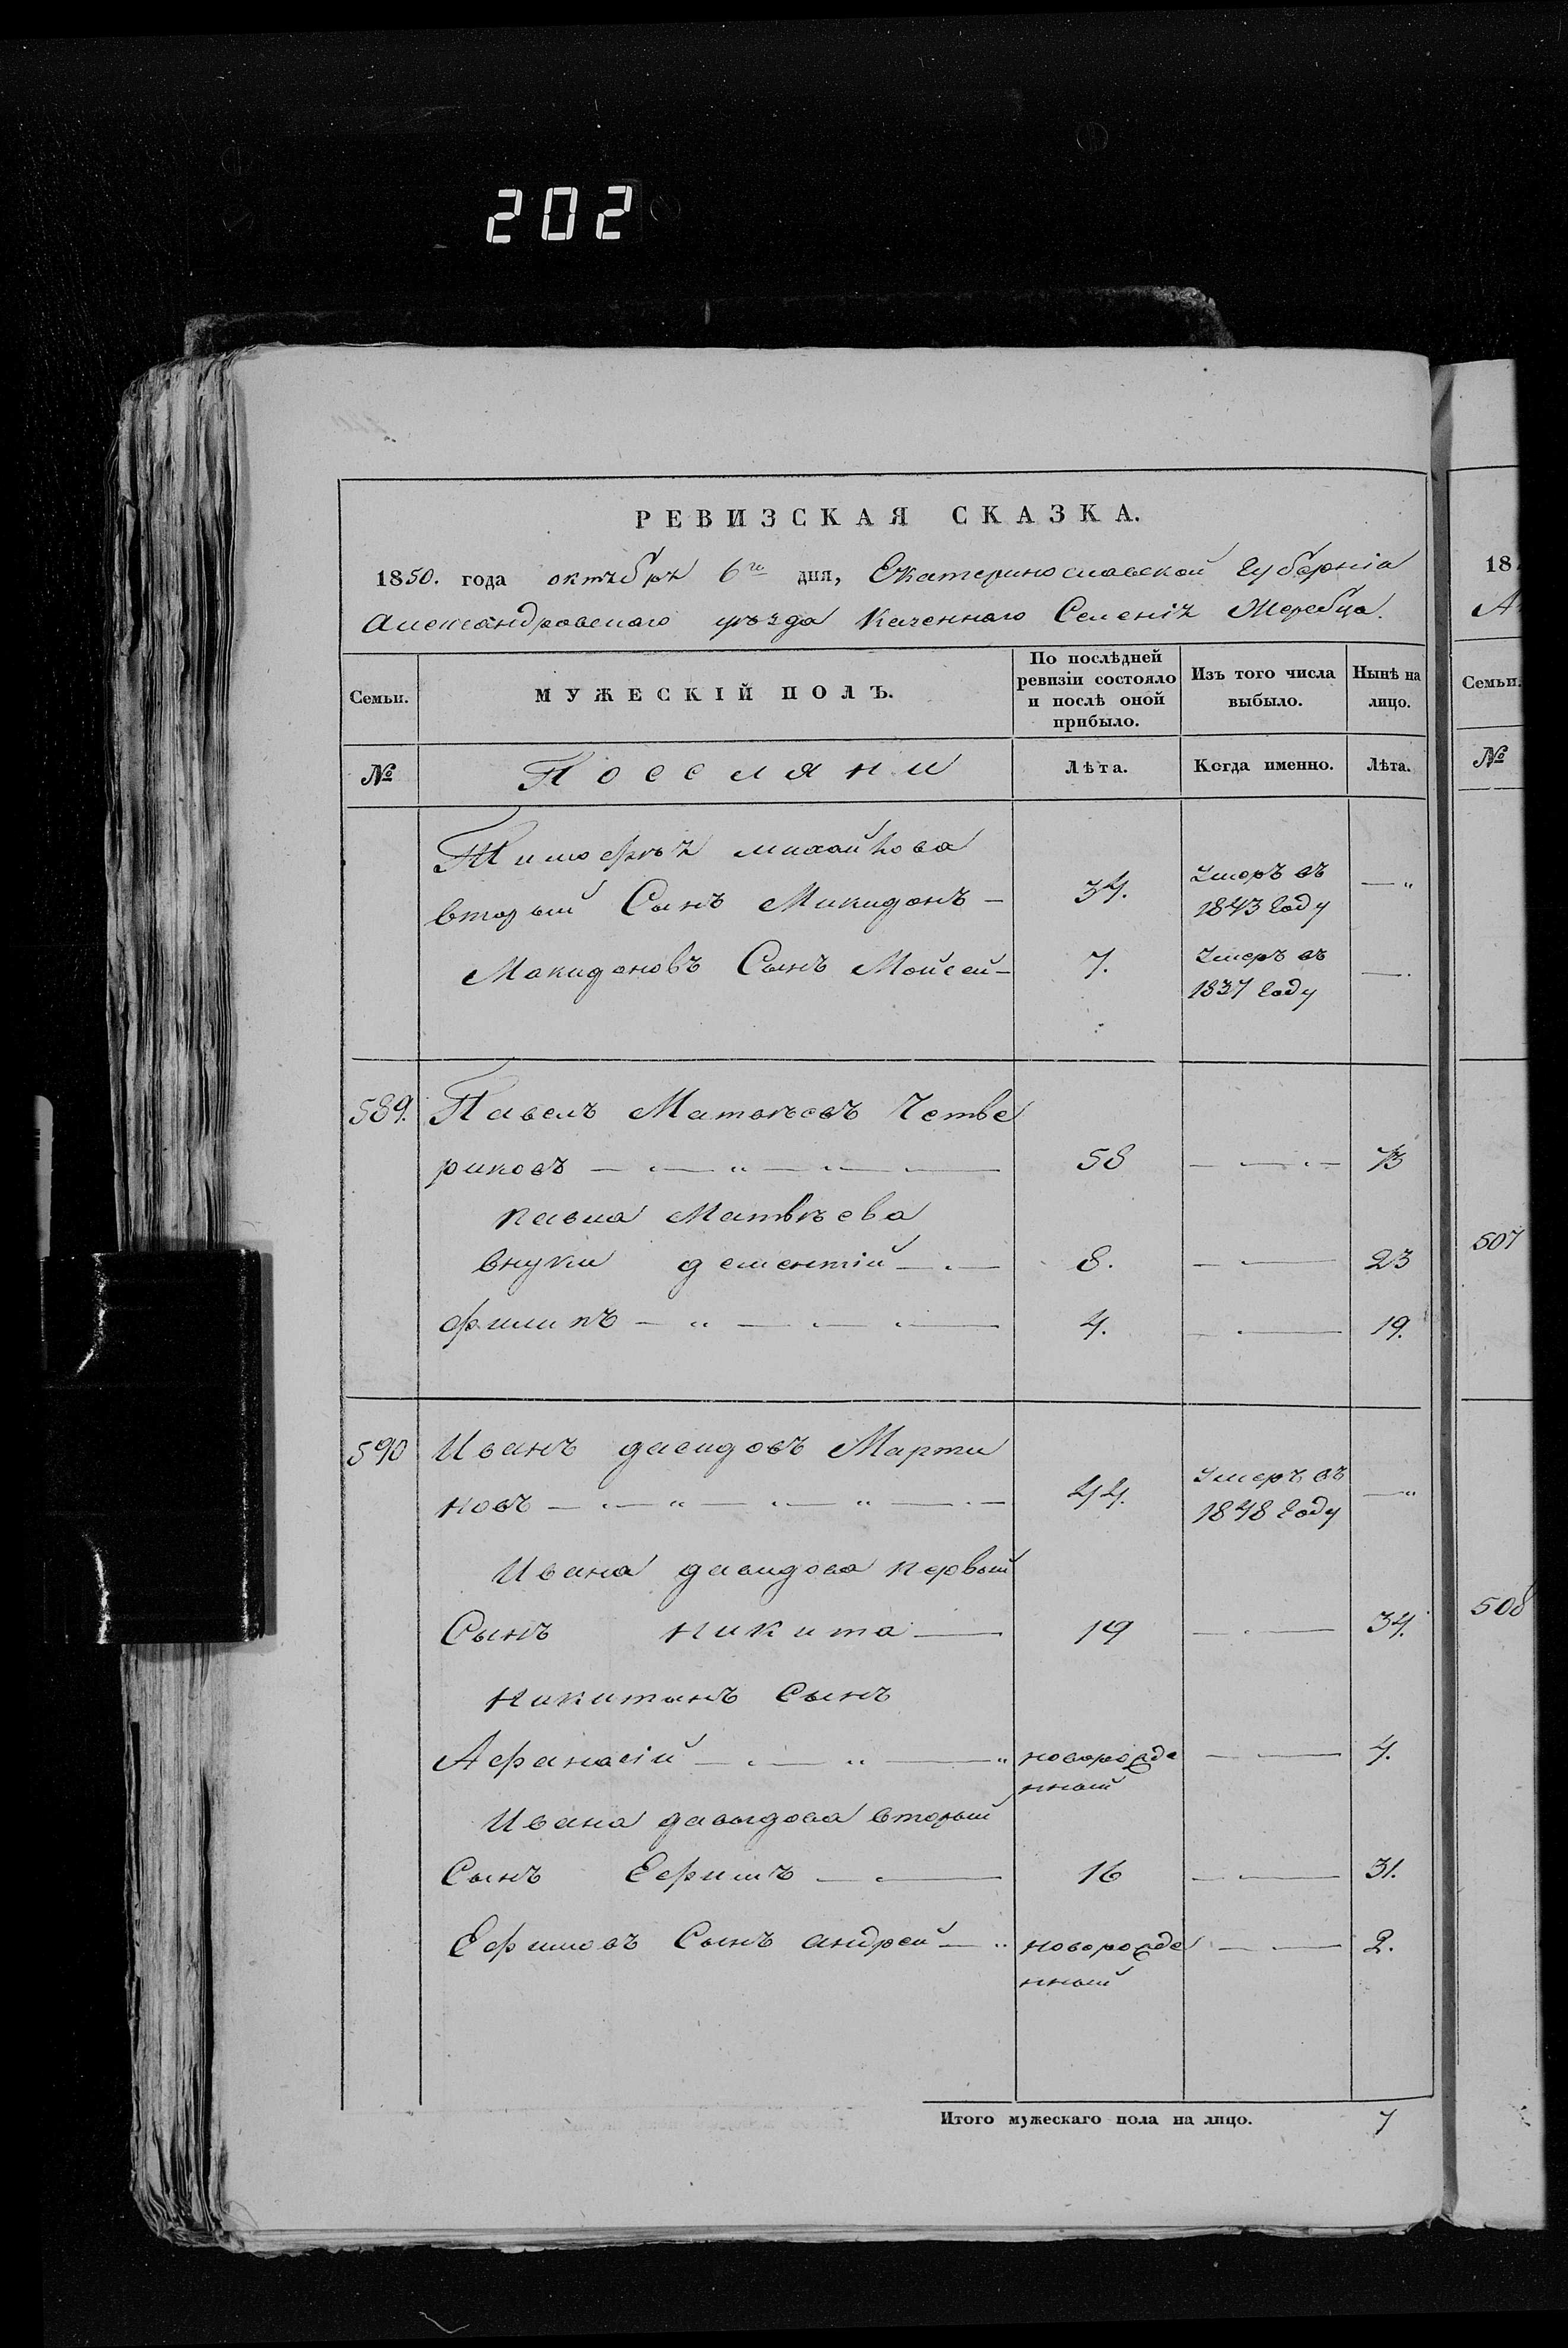 202
РЕВИЗСКАЯ СКАЗКА.
1850. года октября 6го дня, Екатеринославской Губерніи
Александровского уѣзда Казенного Селенія Жеребца.
Семьи.
МУЖЕСКІЙ ПОЛЪ.
По послѣдней ревизіи состояло и послѣ оной прибыло.
Изъ того числа выбыло.
Нынѣ на лицо.
№
Поселяни
Лѣта.
Когда именно.
Лѣта.
Тимофѣя Михайлова
вторый Сынъ Микидонъ 34. Умеръ въ 1843 году
Макидоновъ Сынъ Мойсей 7. Умеръ въ 1837 году
589. Павелъ Матвѣевъ Четве
риковъ 58 73
Павла Матвѣева
внуки Дементій 8. 23
Филипъ 4. 19.
590 Иванъ Давидовъ Марти
новъ 44. Умеръ въ 1848 году
Ивана Давидова первый
Сынъ Никита 19 34.
Никитынъ Сынъ
Афанасій новорожде
нный 4.
Ивана Давыдова вторый
Сынъ Ефимъ 16 31.
Ефимовъ Сынъ Андрей новорожде
нный 2.
Итого мужескаго пола на лицо. 7
18
А
Семьи.
№
507
508